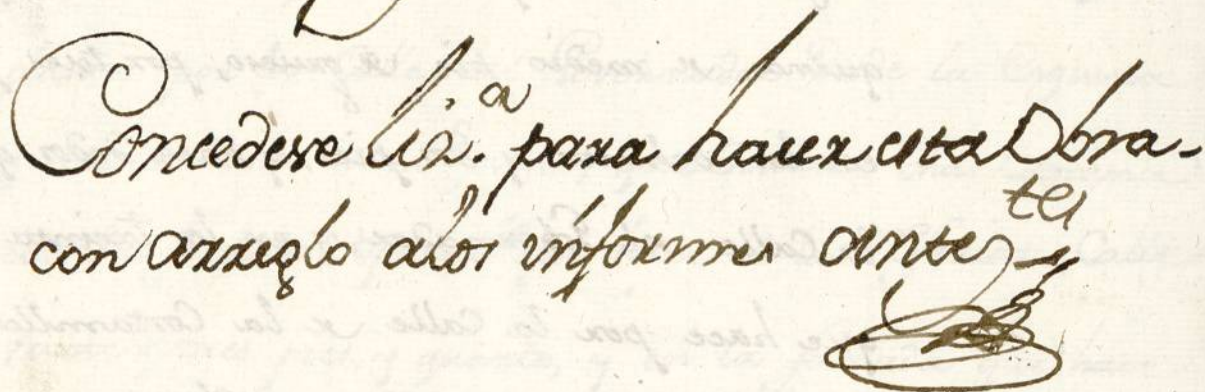 Concedese liz.ᵃ para hacer esta Obra-
con arreglo alos informes anteᵗᵉˢ